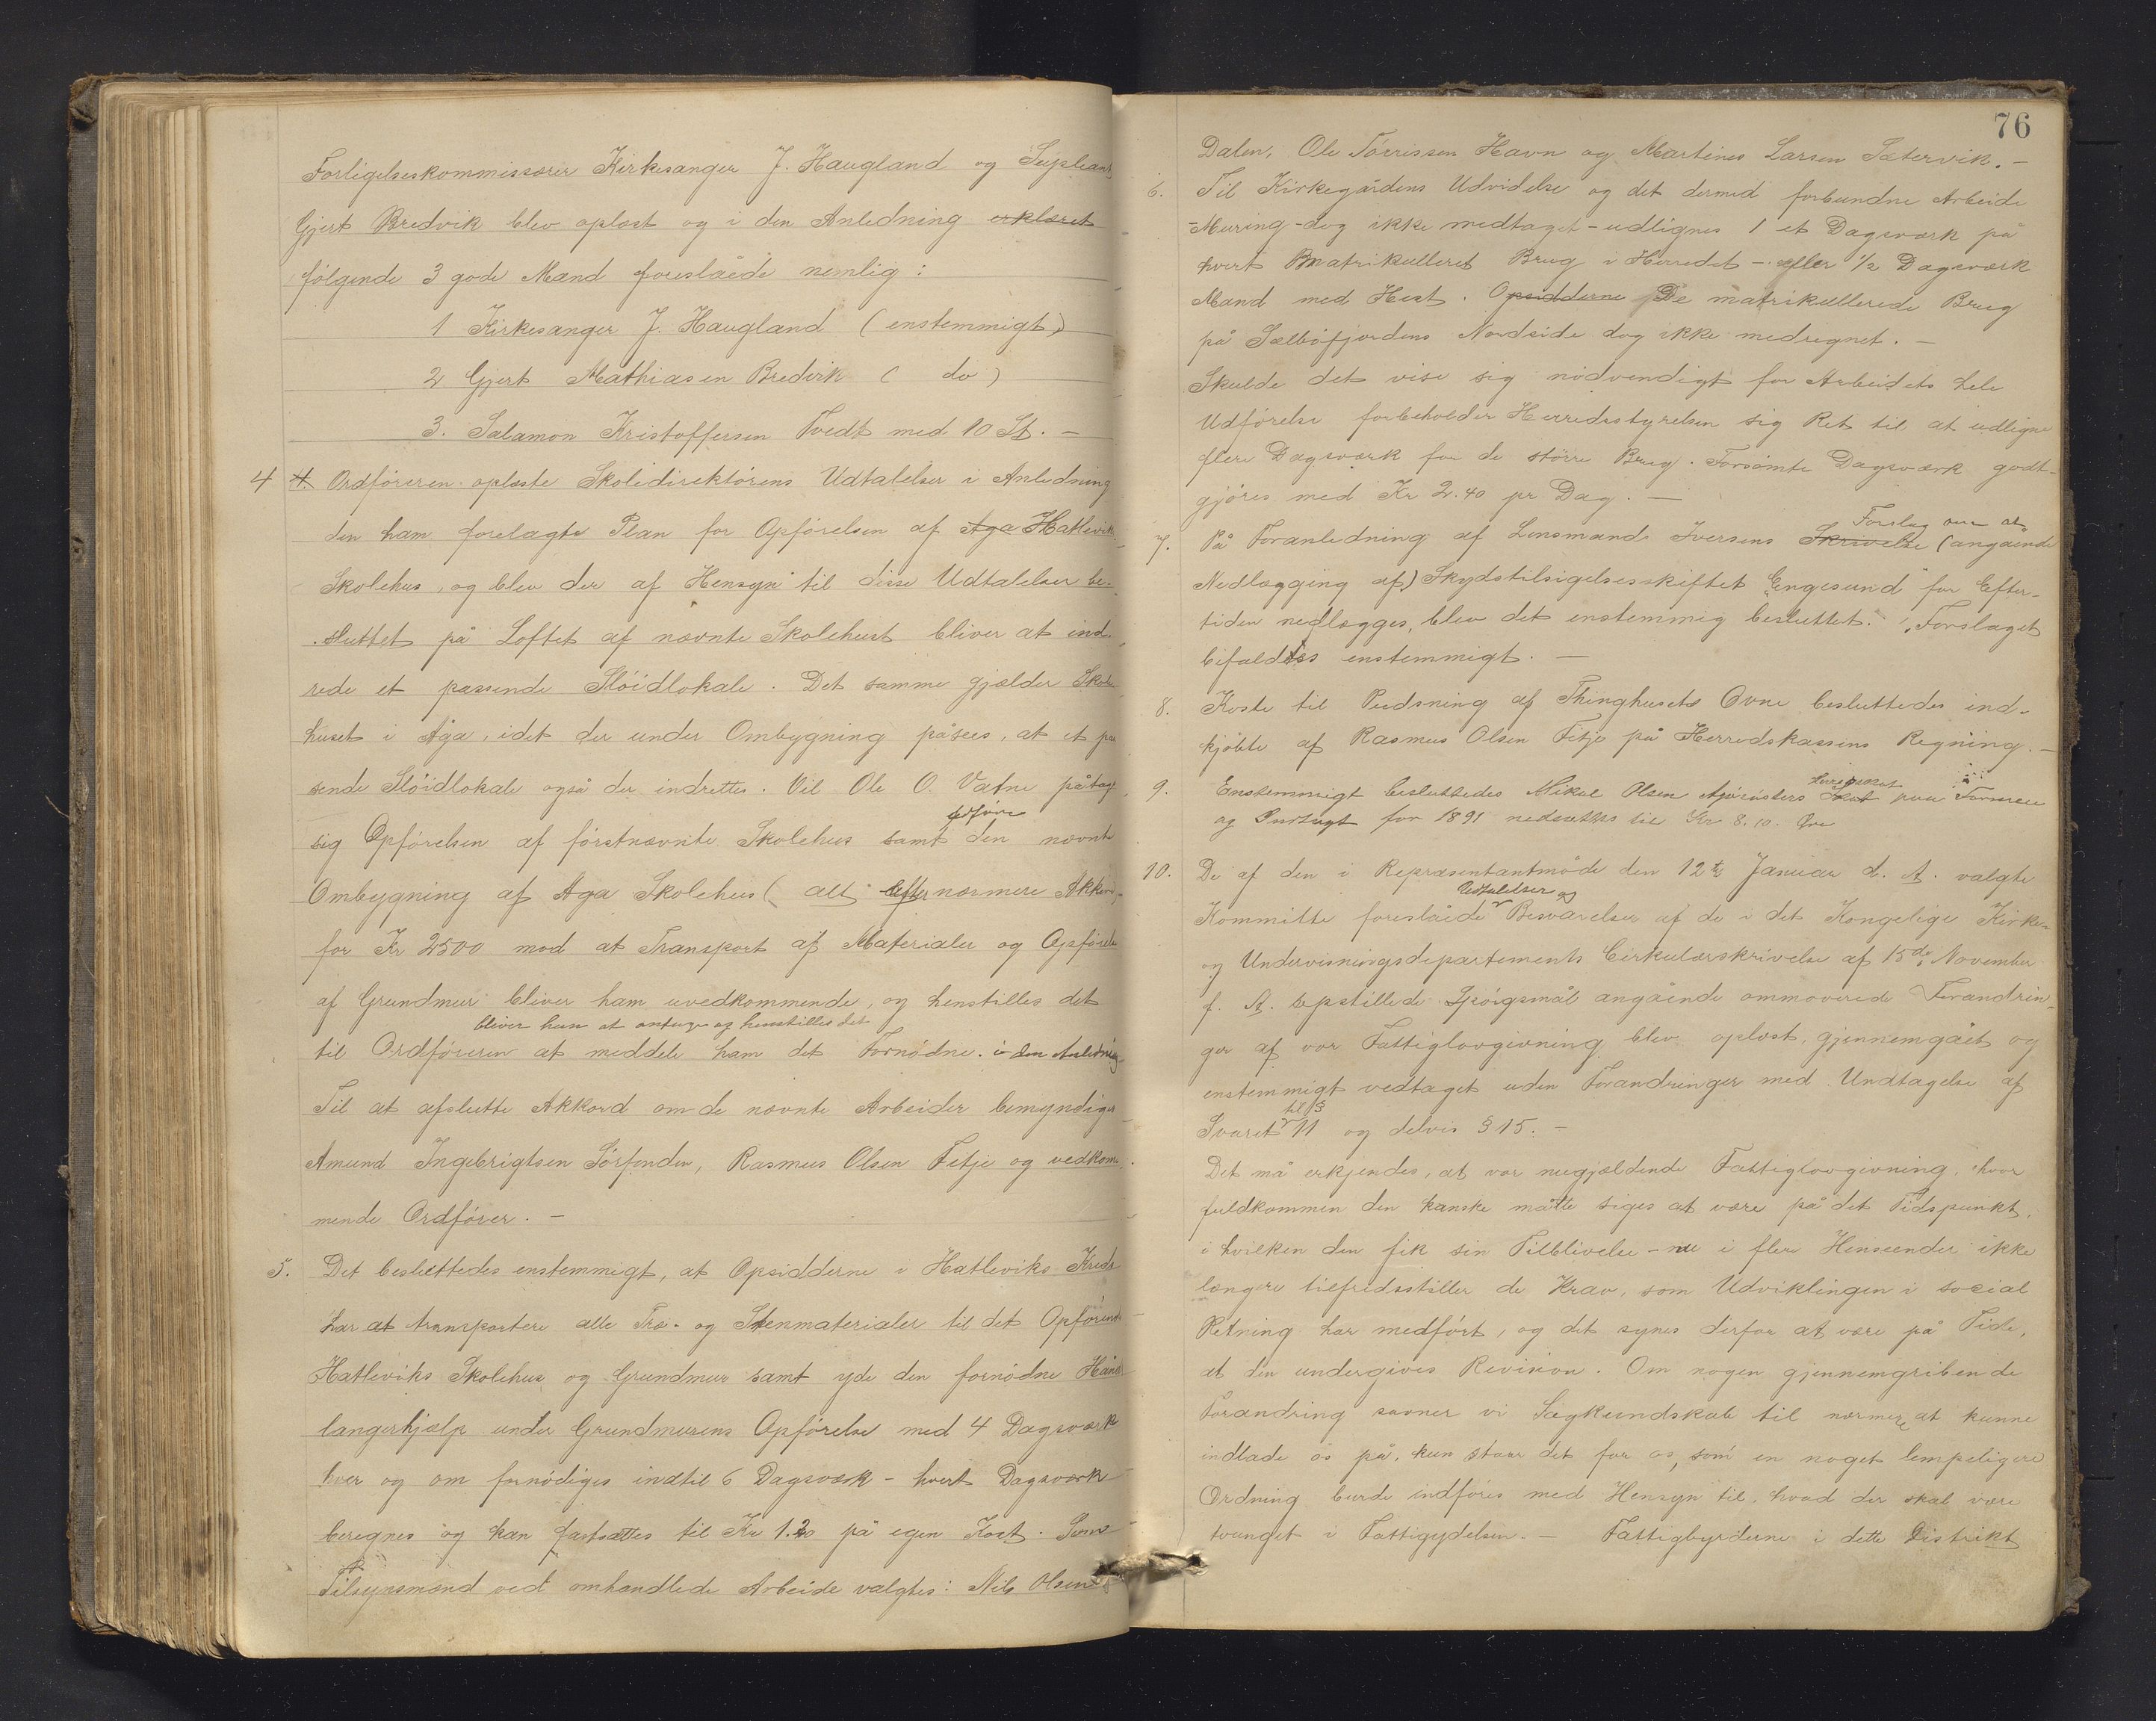 Forligelseskommissærer Kirkesanger J. Haugland og Supleant
Gjert Bredvik blev oplæst og i den Anledning erklæret
følgende 3 gode Mænd foreslåede nemlig:
1 Kirkesanger J. Haugland (enstemmigt)
2 Gjert Mathiasen Bredvik ( do )
3. Salamon Kristoffersen Tvedt med 10 St. –
4 4. Ordføreren oplæste Skoledirektørens Udtalelser i Anledning
den ham forelagte Plan for Opførelsen af Aga Hatlevik
Skolehus, og blev der af Hensyn til disse Udtalelser be-
sluttet på Loftet af nævnte Skolehust bliver at ind
rede et passende Slöidlokale. Det samme gjælder Skole
huset i Åga, idet der under Ombygning påsees, at et pa
sende Slöidlokale også der indrettes. Vil Ole O. Vatne påtage
udføre
sig Opførelsen af førstnævnte Skolehus samt den nævnte
Ombygning af Aga Skolehus ( alt efter nærmere Akkord,
for Kr 2500 mod at Transport af Materialer og Opførelse
af Grundmur bliver ham uvedkommende, og henstilles det
bliver han at antage og henstilles det
til Ordføreren at meddele ham det Fornødne. i den Anledning
Til at afslutte Akkord om de nævnte Arbeider bemyndiges
Amund Ingebrigtsen Sørfonden, Rasmus Olsen Fitje og vedkom-
mende Ordfører. –
5. Det besluttedes enstemmigt, at Opsidderne i Hatleviks Kreds
har at transportere alle Træ- og Stenmaterialer til det Opførende
Hatleviks Skolehus og Grundmur samt yde den fornødne Hånd
langerhjælp under Grundmurens Opførelse med 4 Dagsværk
hver og om fornødiges indtil 6 Dagsværk – hvert Dagsværk
beregnes og kan fastsættes til Kr 1.20 på egen Kost. Som
Tilsynsmænd ved omhandlede Arbeide valgtes: Nils Olsen
76
Dalen, Ole Tørrissen Havn og Martines Larsen Sætervik. –
6. Til Kirkegårdens Udvidelse og det dermed forbundne Arbeide
-Muring – dog ikke medtaget – udlignes 1 et Dagsværk på
hvert Bmatrikulleret Brug i Herredet – eller 1/2 Dagsværk
Mand med Hest. Opsidderne De matrikullerede Brug
på Sælbøfjordens Nordside dog ikke medregnet. –
Skulde det vise sig nødvendigt for Arbeidets hele
Udførelse forbeholder Herredsstyrelsen sig Ret til at udligne
flere Dagsværk for de større Brug. Forsømte Dagsværk godt-
gjøres med Kr 2.40 pr Dag. –
Forslag om at
7. På Foranledning af Lensmands Iversens Skrivelse (angående
Nedlægging af) Skydstilsigelsesskiftet "Engesund" for Efter-
tiden nedlægges, blev det enstemmig besluttet: "Forslaget
bifaldtes enstemmigt. –
8. Koste til Pudsning af Thinghusets Ovne besluttedes ind-
kjøbte af Rasmus Olsen Fitje på Herredskassens Regning. –
9. Enstemmigt besluttedes Mikal Olsen Skat paa Formue
og Indtægt for 1891 nedsættes til Kr 8.10 Øre
10. De af den i Repræsentantmøde den 12te Januar d. A. valgte
Udtalelser og
Kommitte foreslåede Besvarelser af de i det Kongelige Kirke-
og Undervisningsdepartements Cirkulærskrivelse af 15de November
f. A. opstillede Spørgsmål angående ommoverede Forandrin-
ger af vor Fattiglovgivning blev oplæst, gjennemgået og
enstemmigt vedtaget uden Forandringer med Undtagelse af
til §
Svaret 11 og delvis § 15. –
Det må erkjendes, at vor nugjældende Fattiglovgivning, hvor
fuldkommen den kanske måtte siges at være på det Tidspunkt,
i hvilken den fik sin Tilblivelse – nu i flere Henseender ikke
længere tilfredsstiller de Krav, som Udviklingen i social
Retning har medført, og det synes derfor at være på Tide,
at den undergives Revision. Om nogen gjennemgribende
Forandring savner vi Sagkundskab til nærmere at kunne
indlade os på, kun står det for os, som en noget lempeligere
Ordning burde indføres med Hensyn til, hvad der skal være
tvunget i Fattigydelsen. – Fattigbyrderne i dette Distrikt